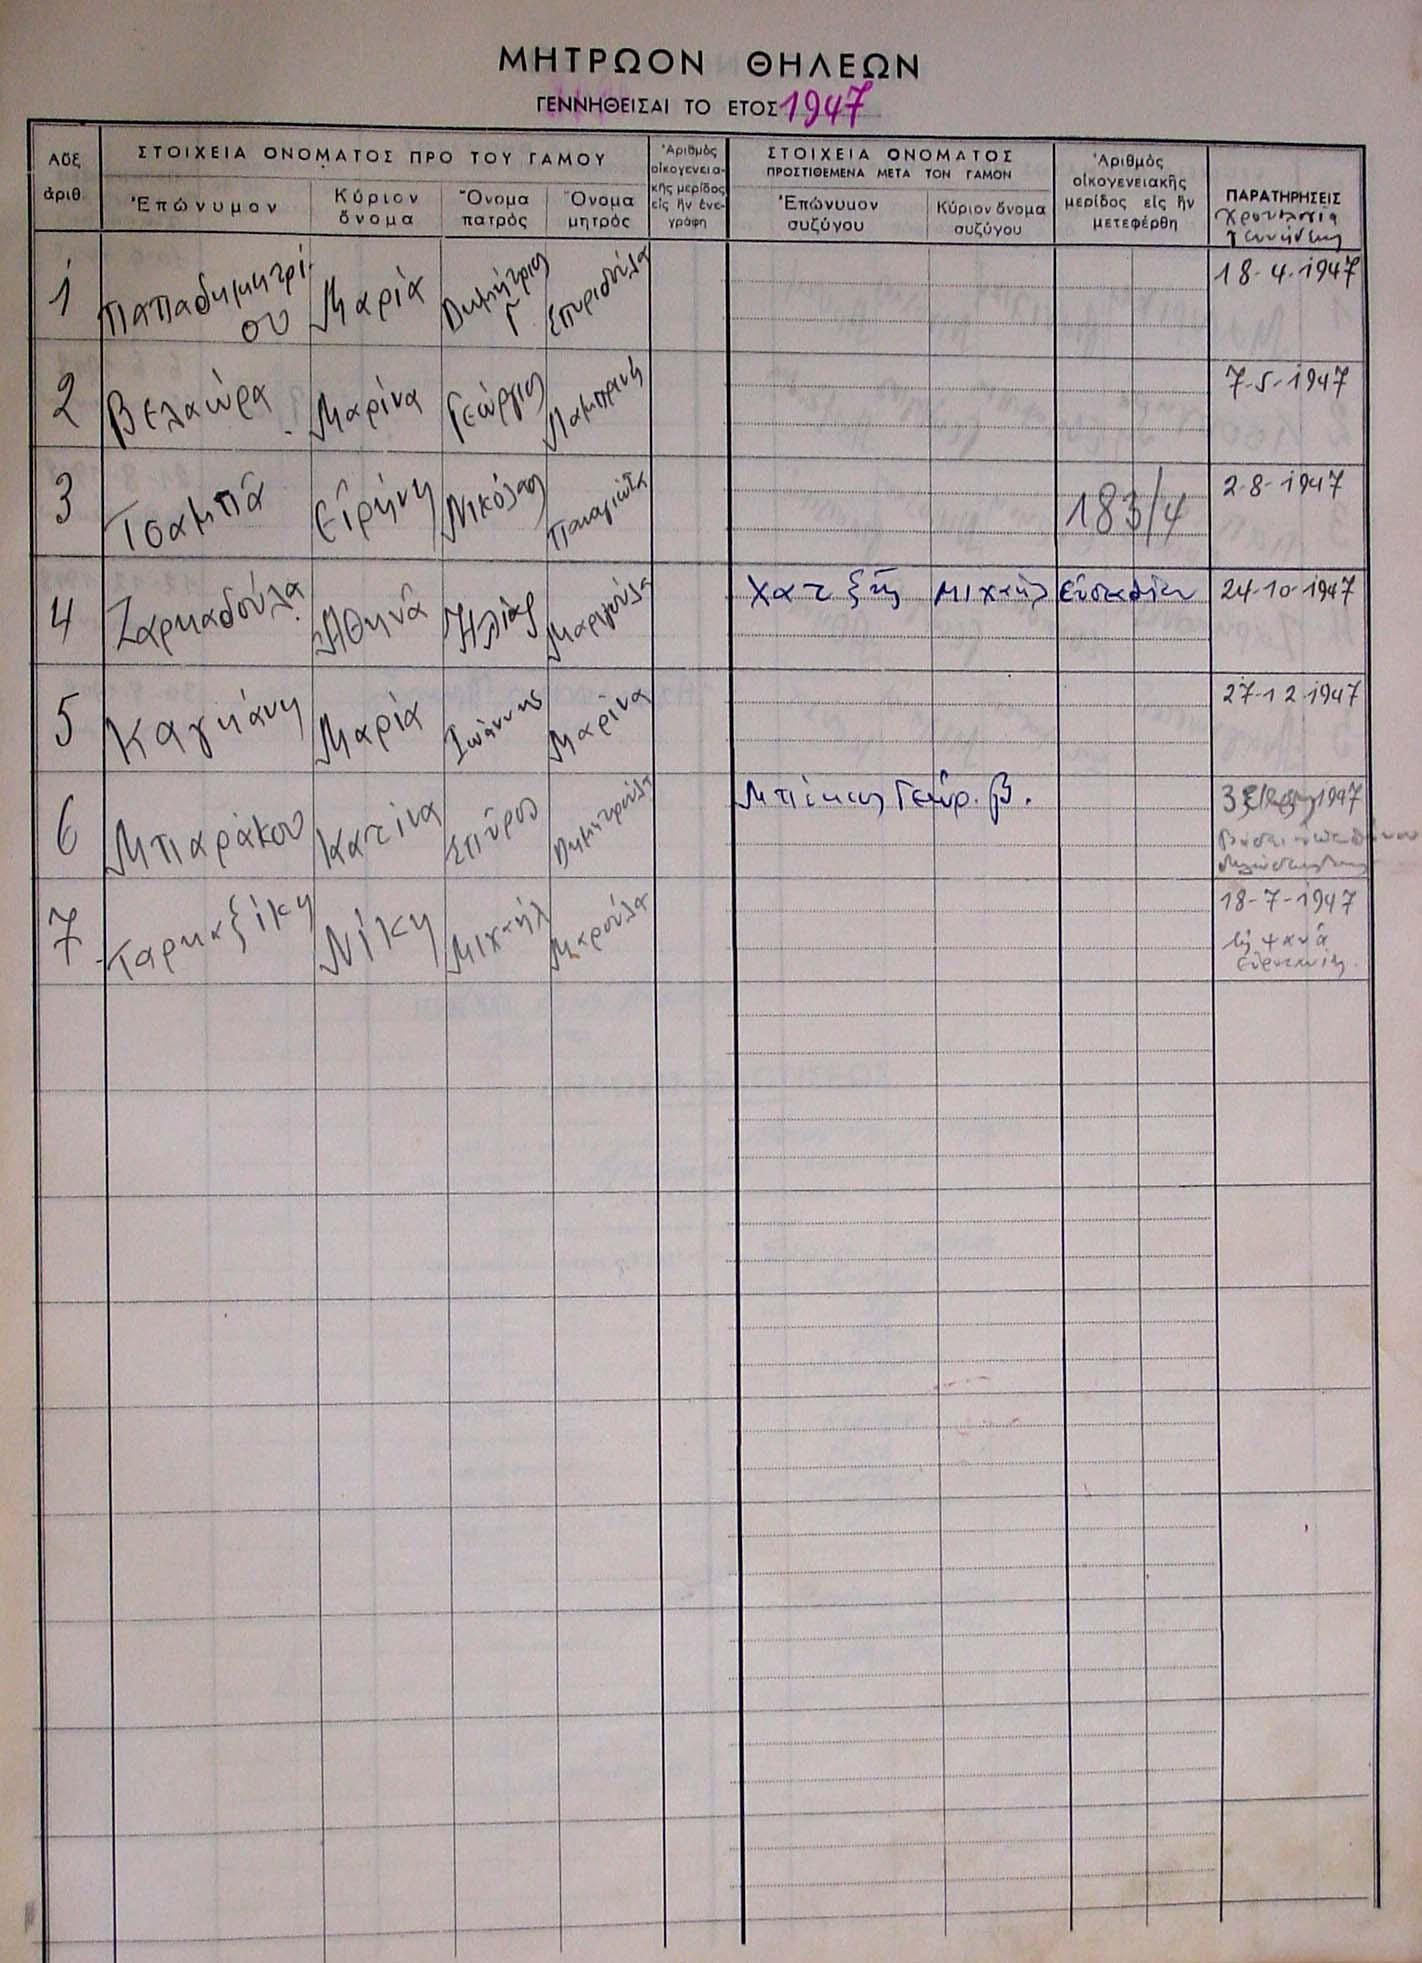 ΜΗΤΡΩΟΝ ΘΗΛΕΩΝ
ΓΕΝΝΗΘΕΙΣΑΙ ΤΟ ΕΤΟΣ 1947
Αὔξ. ἀριθ. ΣΤΟΙΧΕΙΑ ΟΝΟΜΑΤΟΣ ΠΡΟ ΤΟΥ ΓΑΜΟΥ Ἀριθμὸς οἰκογενειακῆς μερίδος εἰς ἣν ἐνεγράφη ΣΤΟΙΧΕΙΑ ΟΝΟΜΑΤΟΣ ΠΡΟΣΤΙΘΕΜΕΝΑ ΜΕΤΑ ΤΟΝ ΓΑΜΟΝ Ἀριθμὸς οἰκογενειακῆς μερίδος εἰς ἣν μετεφέρθη ΠΑΡΑΤΗΡΗΣΕΙΣ
Ἐπώνυμον Κύριον ὄνομα Ὄνομα πατρὸς Ὄνομα μητρὸς Ἐπώνυμον συζύγου Κύριον ὄνομα συζύγου χρονολογία γεννήσεως
1 Παπαδημητρίου Μαρία Δημήτριος Γ Σπυριδούλα 18-4-1947
2 Βελαώρα Μαρίνα Γεώργιος Λαμπρινή 7-5-1947
3 Τσαμπᾶ Εἰρήνη Νικόλαος Παναγιώτα 183/4 2-8-1947
4 Ζαρκαδούλα Ἀθηνᾶ Ἠλίας Μαριγούλα Χατζῆς Μιχαήλ 24-10-1947
5 Καγκάνη Μαρία Ἰωάννης Μαρίνα 27-12-1947
6 Μπαράκου Κατίνα Σπῦρος Δημητρούλα Γεώρ. Β. 1947
7 Ταρκαζίκη Νίκη Μιχαήλ Μαρούλα 18-7-1947